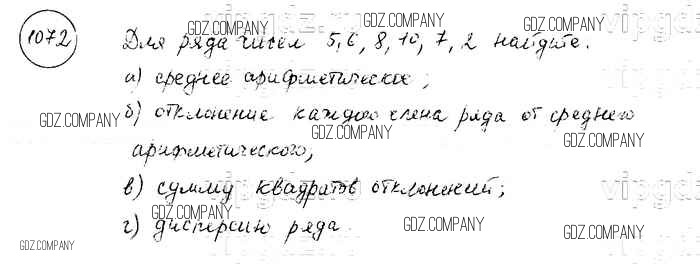 1072
Для ряда чисел 5, 6, 8, 10, 7, 2 найдите.
а) среднее арифметическое;
б) отклонение каждого члена ряда от среднего
арифметического;
в) сумму квадратов отклонений;
г) дисперсию ряда.
GDZ.COMPANY
GDZ.COMPANY
GDZ.COMPANY
GDZ.COMPANY
GDZ.COMPANY
GDZ.COMPANY
GDZ.COMPANY
GDZ.COMPANY
GDZ.COMPANY
GDZ.COMPANY
GDZ.COMPANY
GDZ.COMPANY